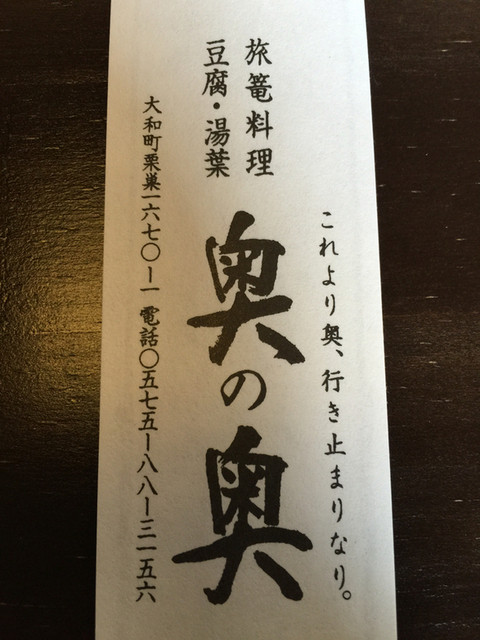 これより奥、行き止まりなり。
旅篭料理
豆腐・湯葉
奥の奥
大和町栗巣一六七〇ー一 電話〇五七五ー八八ー三一五六